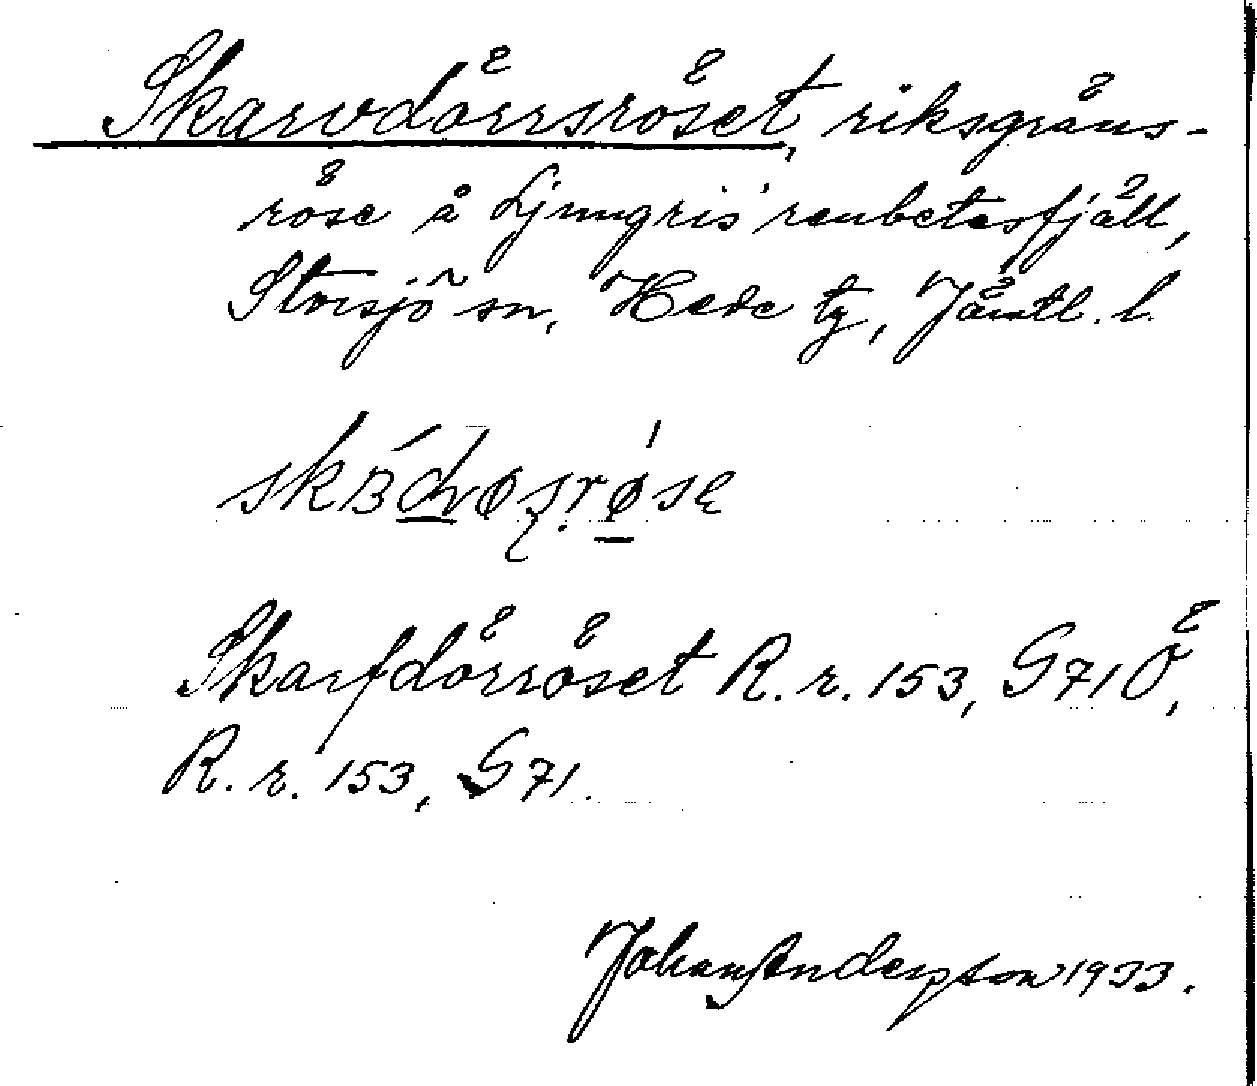 Skarvdörrsröset, riksgräns-
röse å Ljungris' renbetesfjäll,
Storsjö sn, Hede tg, Jämtl. l.
Skarfdörröset R. r. 153, G71Ö,
R. r. 153, G71.
Johan Anderson 1933.